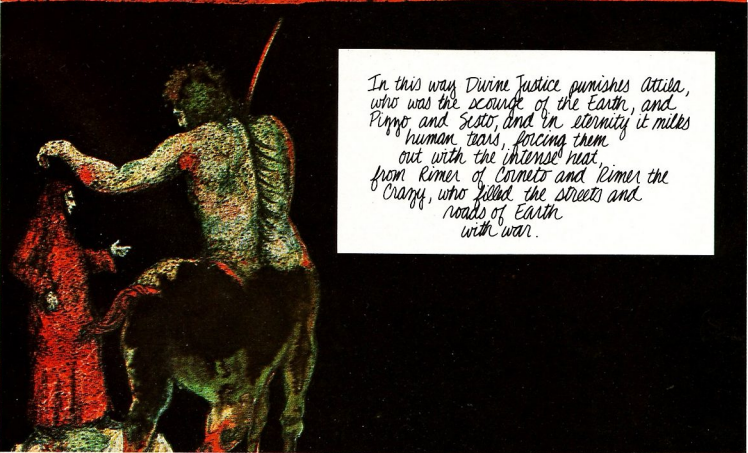 In this way Divine Justice punishes Attila,
who was the scourge of the Earth, and
Pizzo and Sesto, and in eternity it milks
human tears, forcing them
out with the intense heat,
from Rimer of Corneto and Rimer the
Crazy, who filled the streets and
roads of Earth
with war.